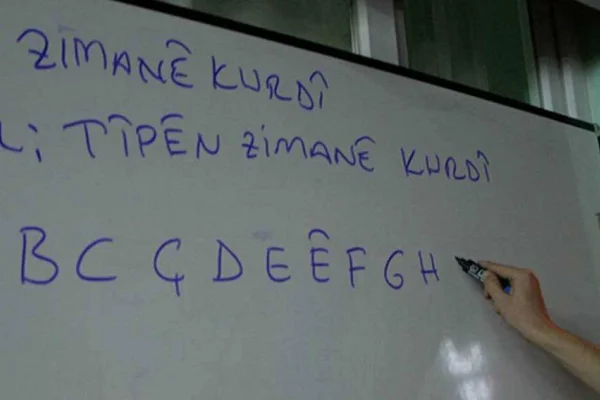 ZIMANÊ KURDÎ
; TÎPÊN ZIMANÊ KURDÎ
B C Ç D E Ê F G H